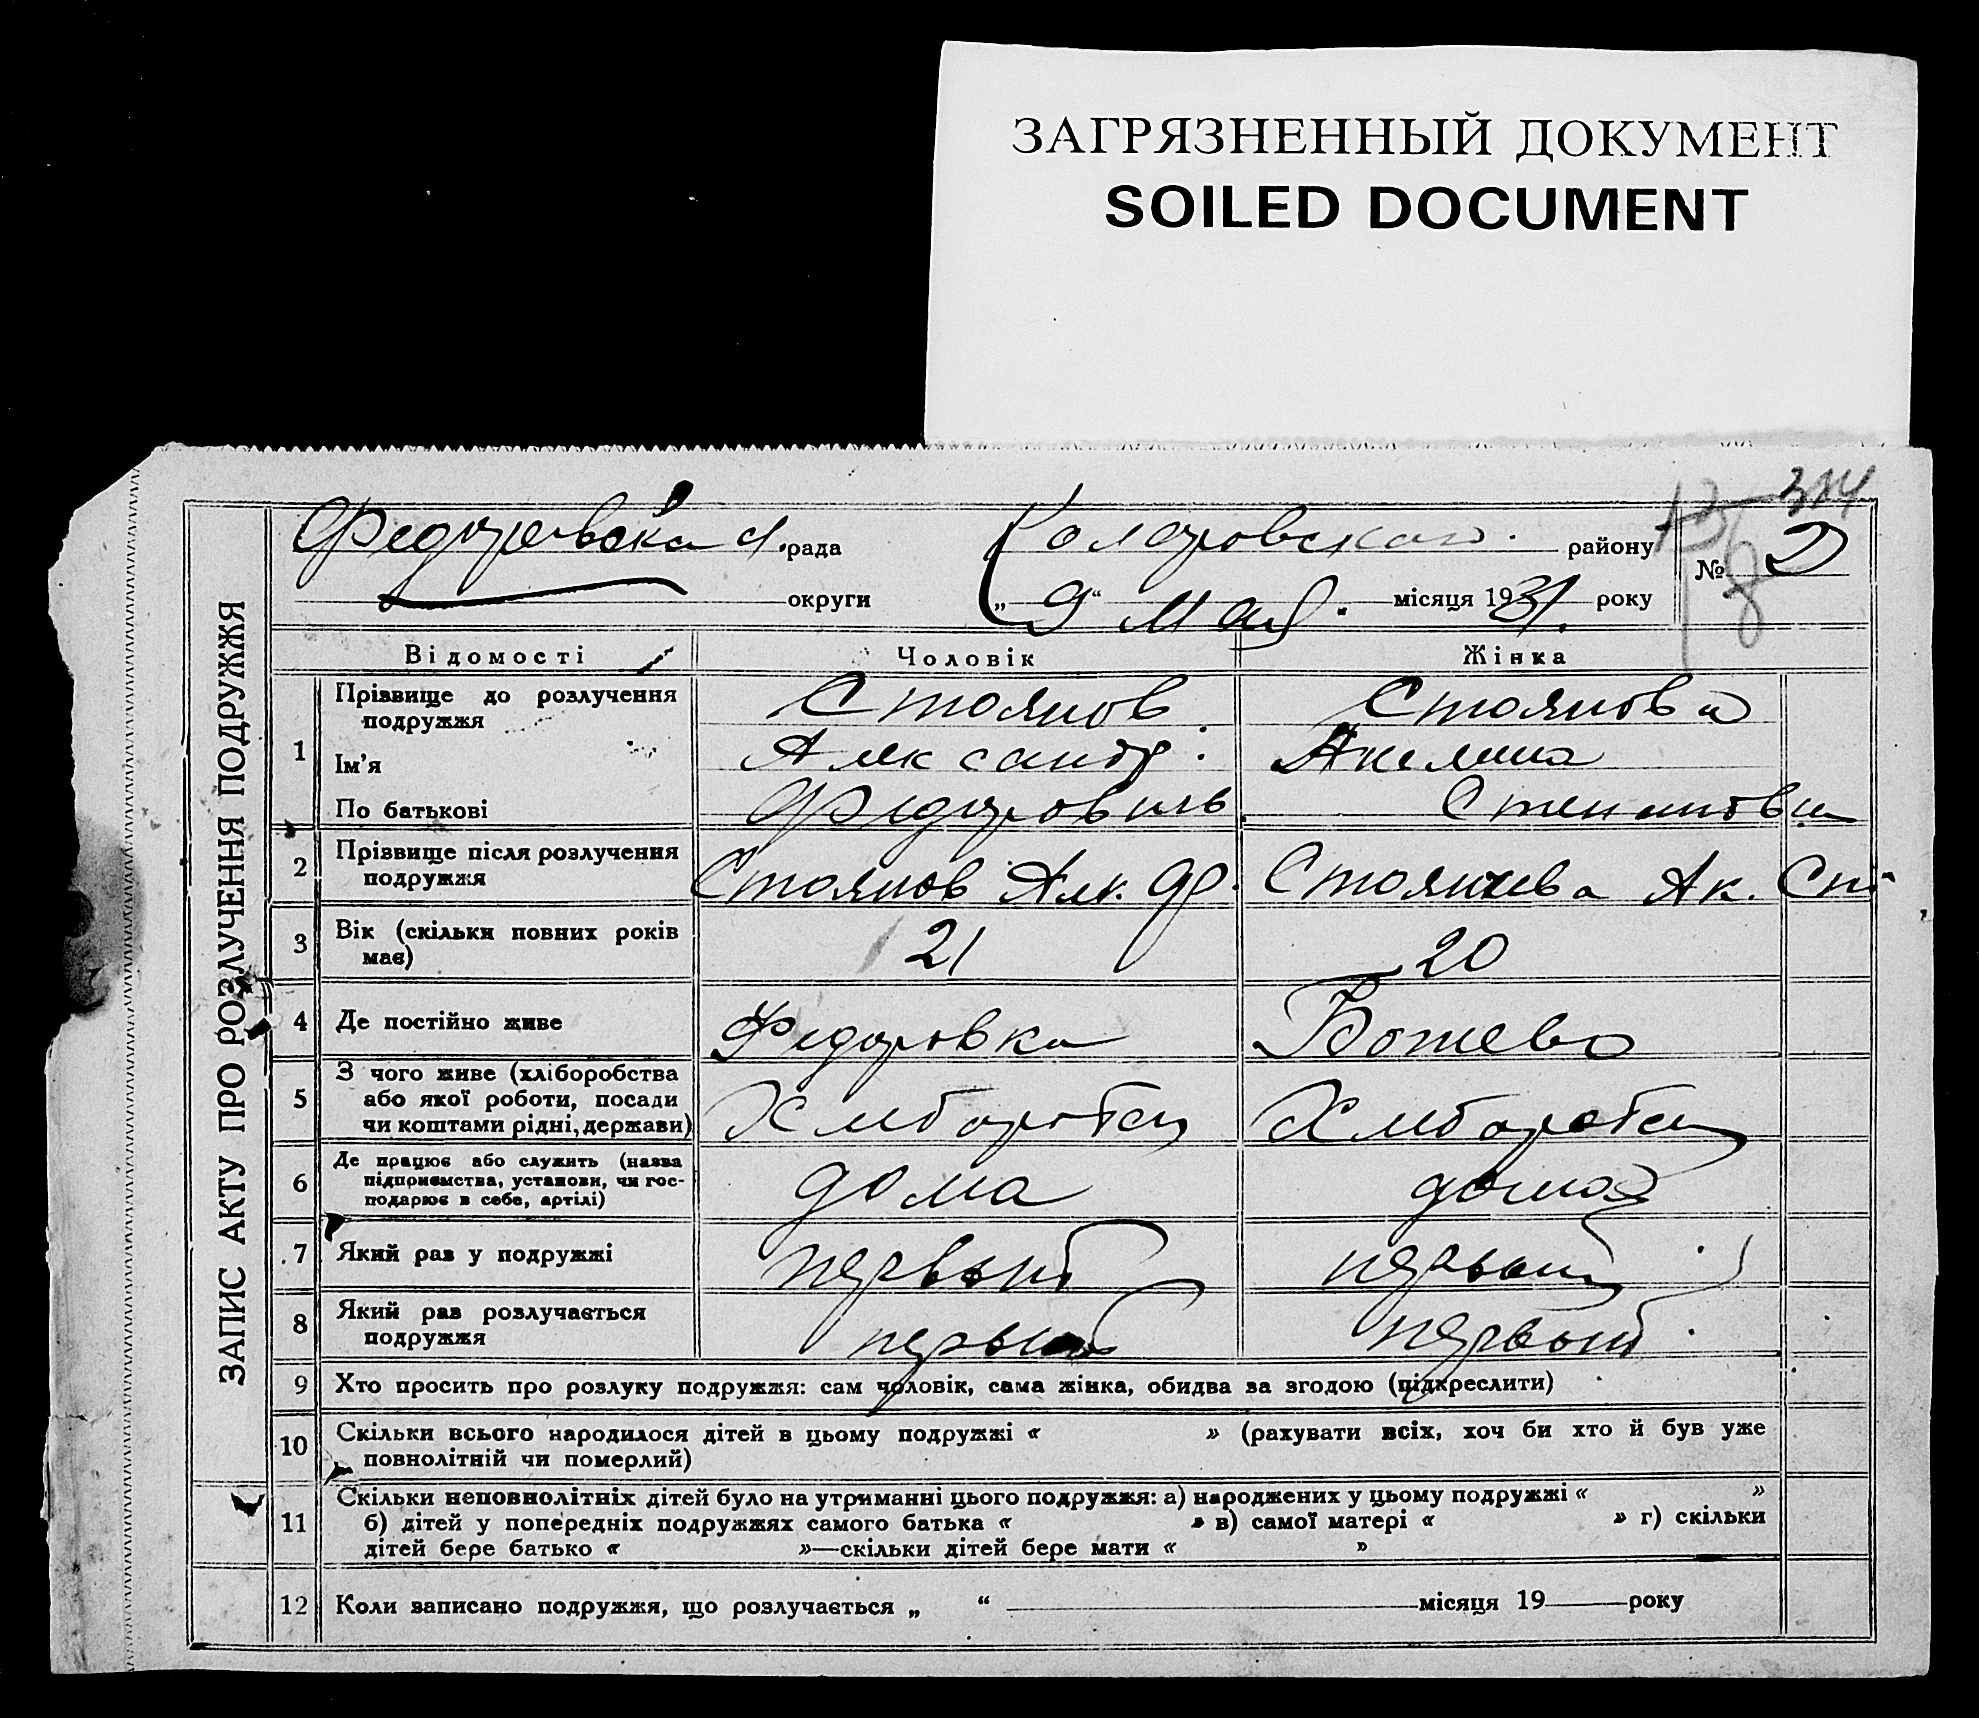 ЗАГРЯЗНЕННЫЙ ДОКУМЕНТ
SOILED DOCUMENT
314
13
18
рада Коларовского району № 2
округи „9“ Мая місяця 1931. року
ЗАПИС АКТУ ПРО РОЗЛУЧЕННЯ ПОДРУЖЖЯ
Відомості Чоловік Жінка
1 Прізвище до розлучення подружжя Стоянов Стоянова
Ім'я Александр. Акелина
По батькові Федорович Степановна
2 Прізвище після розлучення подружжя Стоянов Алк. Ф. Ак. Сті
3 Вік (скільки повних років має) 21 20
4 Де постійно живе Федоровка Ботево
5 З чого живе (хліборобства або якої роботи, посади чи коштами рідні, держави)
6 Де працює або служить (назва підприємства, установи, чи господарює в себе, артілі) дома дома
7 Який раз у подружжі первый первый
8 Який раз розлучається подружжя первый первый
9 Хто просить про розлуку подружжя: сам чоловік, сама жінка, обидва за згодою (підкреслити)
10 Скільки всього народилося дітей в цьому подружжі « » (рахувати всіх, хоч би хто й був уже
повнолітній чи померлий)
11 Скільки неповнолітніх дітей було на утриманні цього подружжя: а) народжених у цьому подружжі « »
б) дітей у попередніх подружжях самого батька « » в) самої матері « » г) скільки
дітей бере батько « »—скільки дітей бере мати « »
12 Коли записано подружжя, що розлучається „ “ місяця 19 року